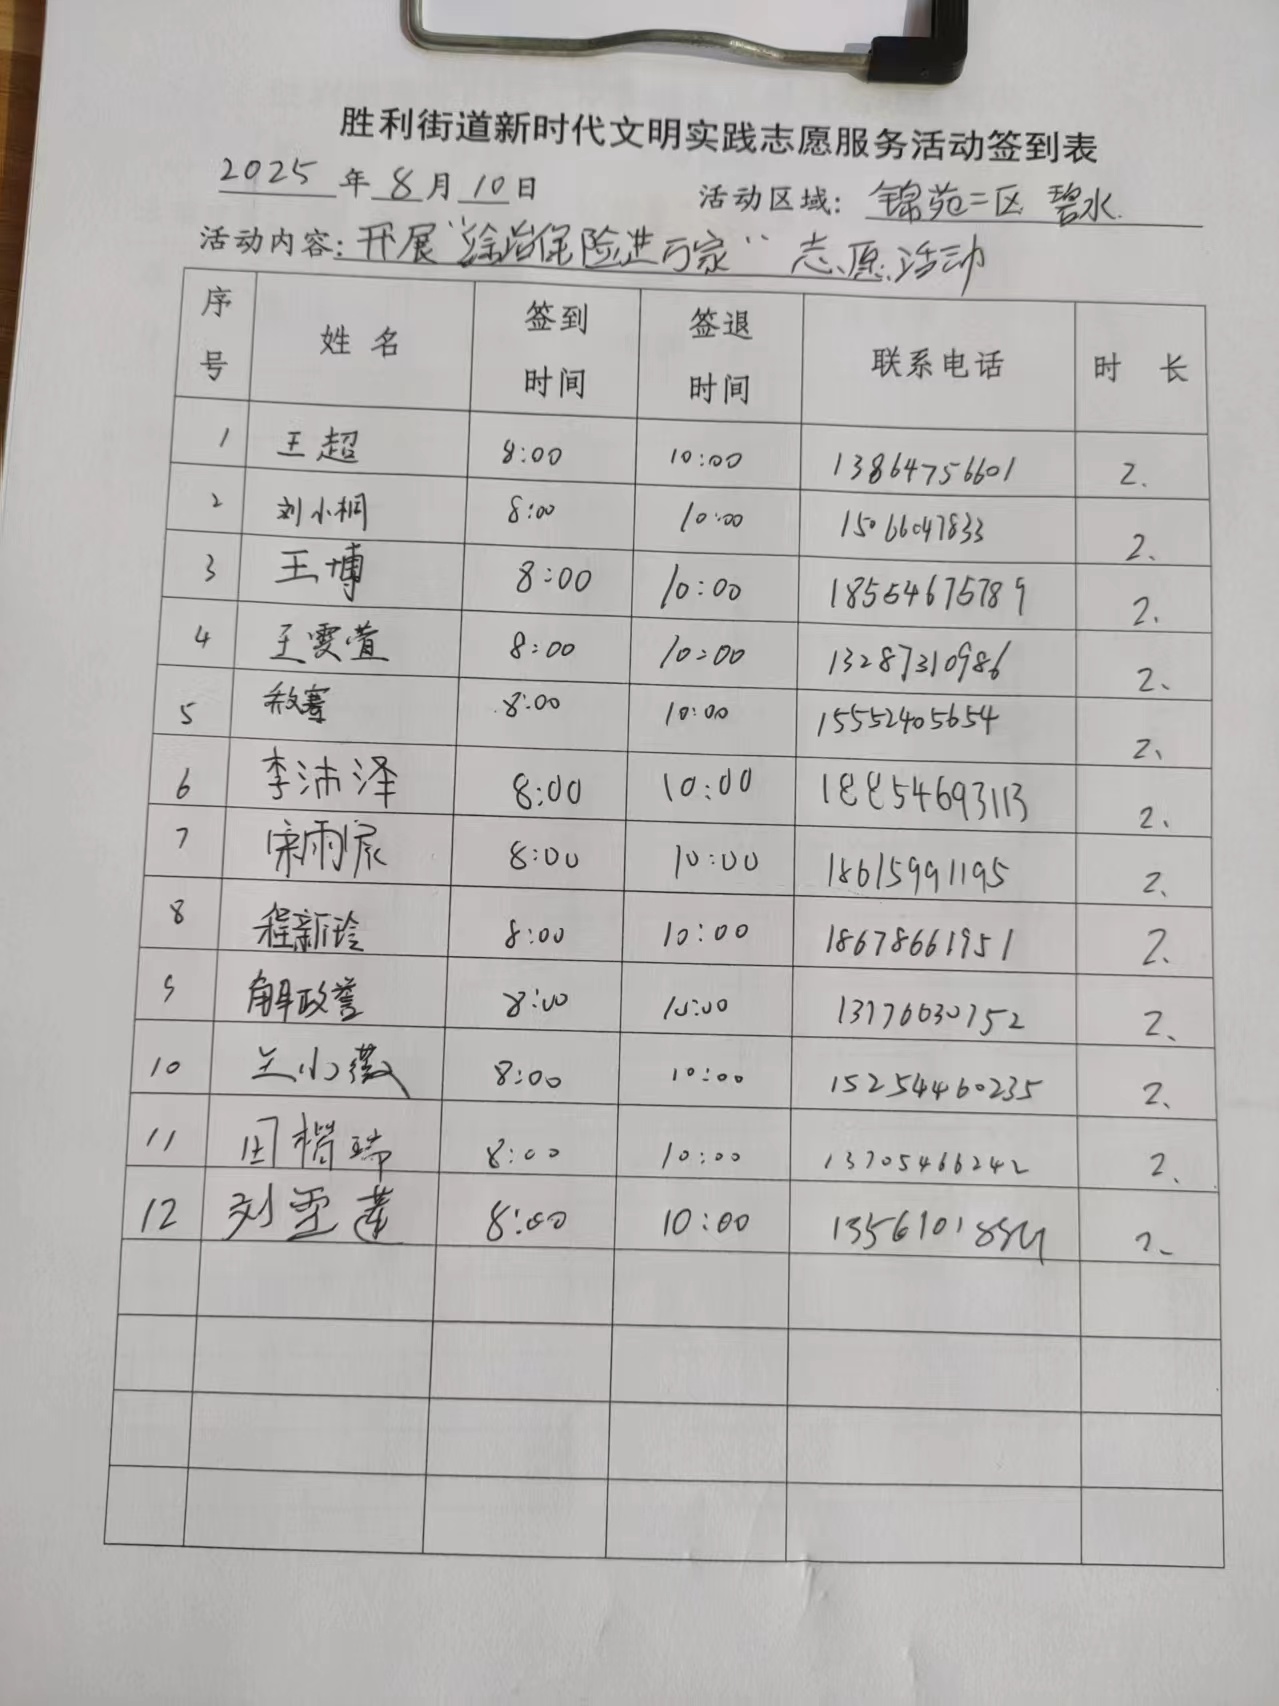 胜利街道新时代文明实践志愿服务活动签到表
2025年8月10日 活动区域: 锦苑二区 碧水.
活动内容: 开展"综治保险进万家"志愿活动
序号 姓名 签到时间 签退时间 联系电话 时长
1 王超 8:00 10:00 13864756601 2.
2 刘小桐 8:00 10:00 15066047833 2.
3 王博 8:00 10:00 18554675789 2.
4 王雯萱 8:00 10:00 13287310986 2、
5 8:00 10:00 15552405654 2、
6 李沛泽 8:00 10:00 18854693113 2.
7 宋雨宸 8:00 10:00 18615991195 2.
8 程新玲 8:00 10:00 18678661951 2.
9 解政誉 8:00 10:00 13176630752 2、
10 兰小薇 8:00 10:00 15254460235 2、
11 田楷瑞 8:00 10:00 13705466242 2、
12 刘雪莲 8:00 10:00 2、